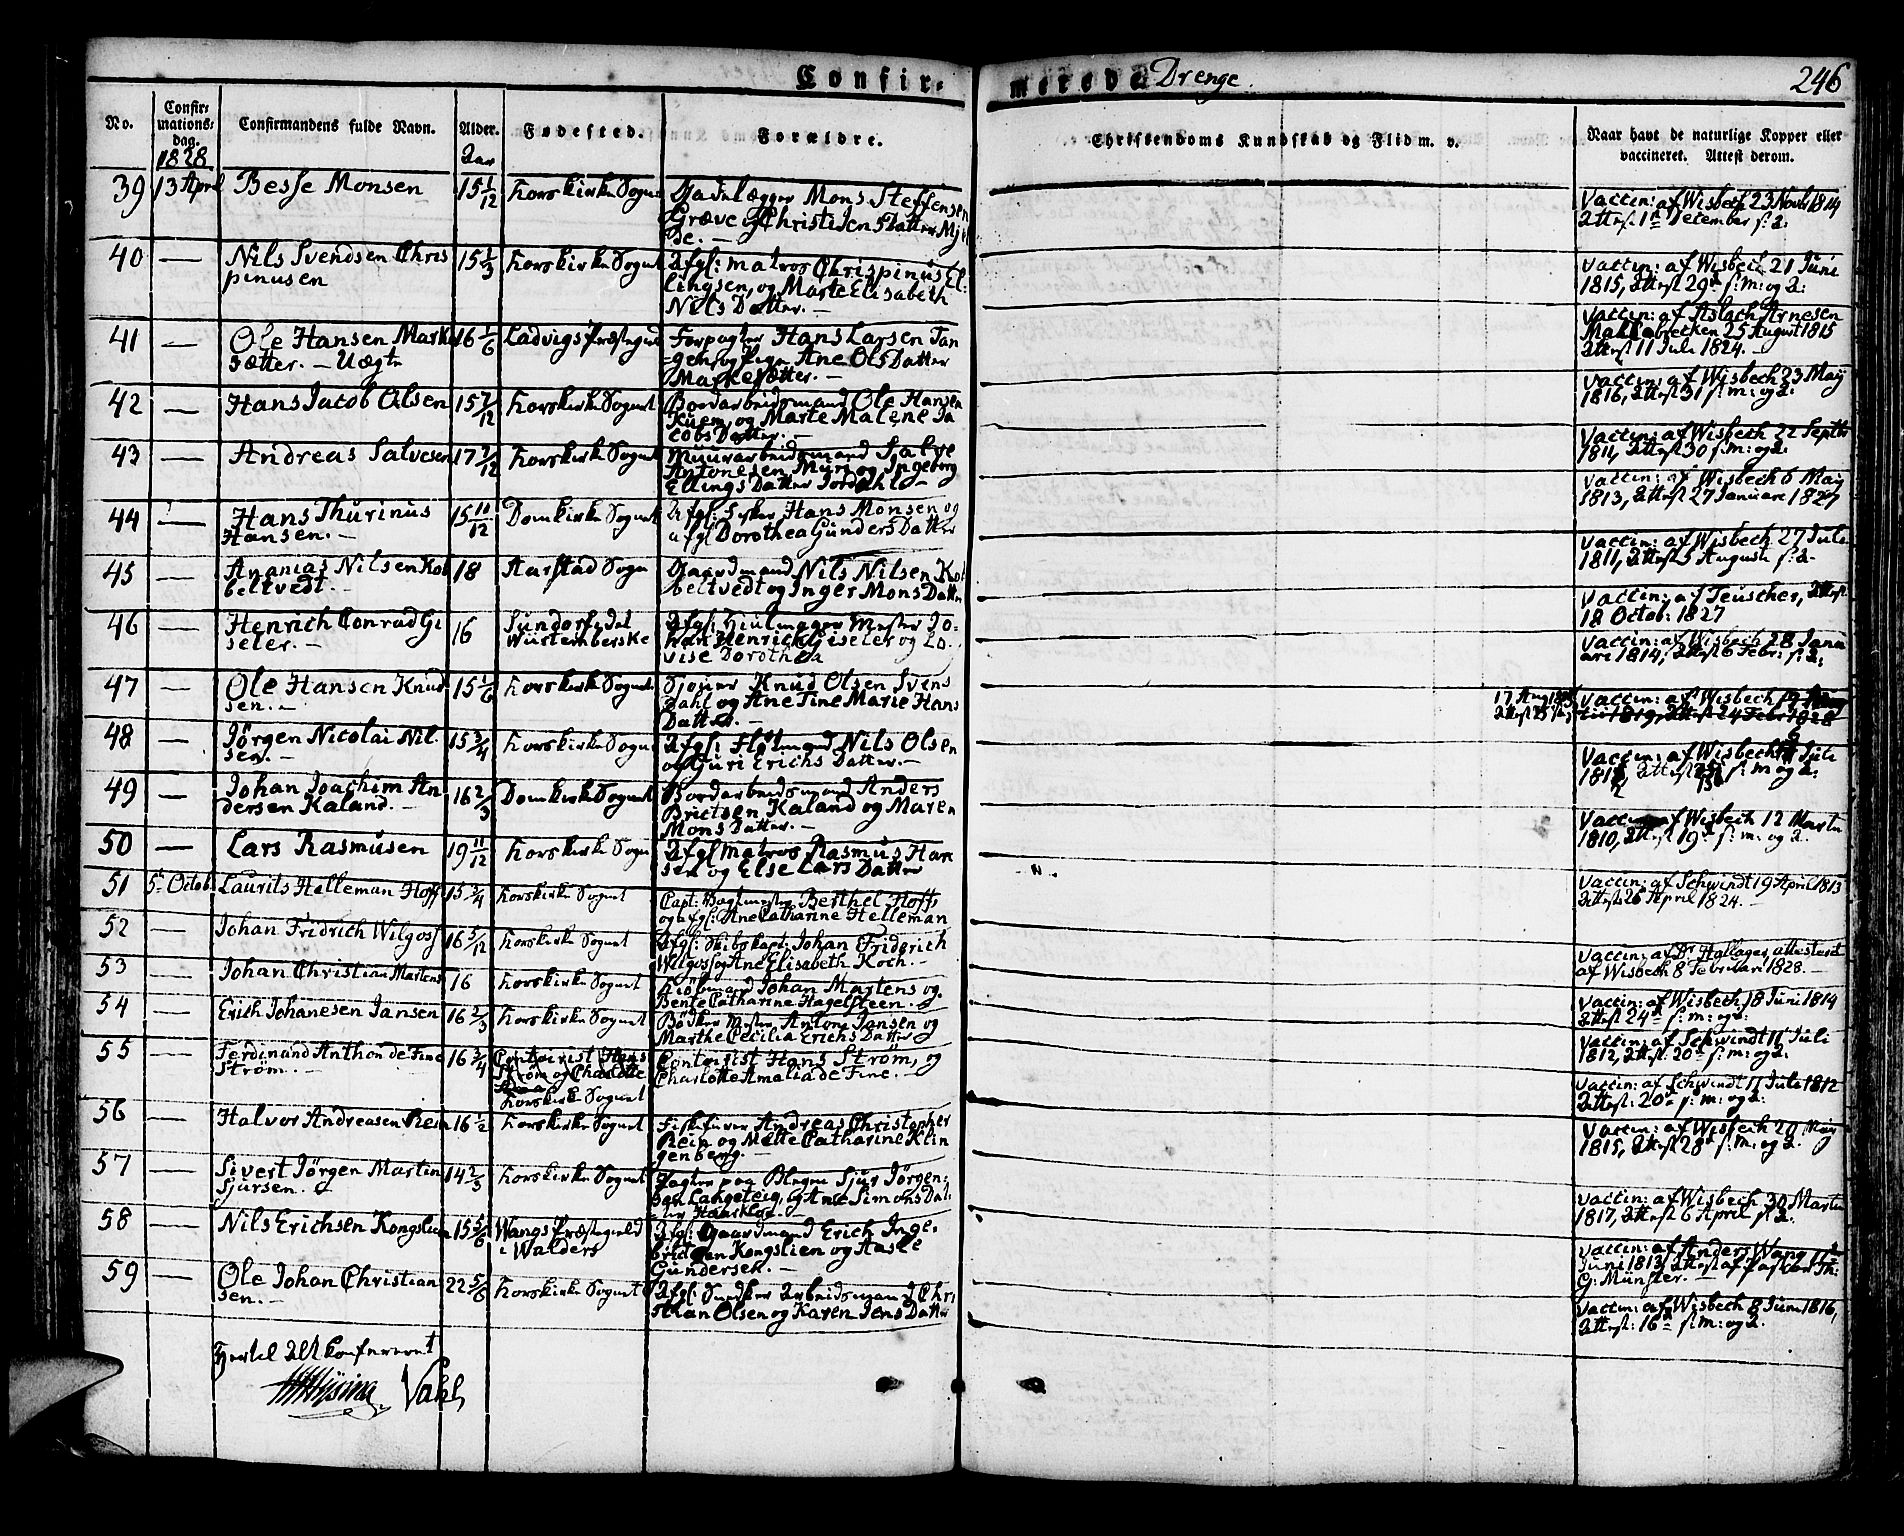 Confir- merede Drenge. 246
No. Confir- mations- dag. Confirmandens fulde Navn. Alder. Fødested. Forældre. Christendoms Kundskab og Flid m. v. Naar havt de naturlige Kopper eller
vaccineret. Attest derom.
1828 Aar
39 13 April Besse Monsen 15 1/12 Korskirke Sogn Gadelægger Mons Steffensen
Græve og Christi Jens Datter
Vaccin: af Wisbech 23 Novbr 1814
Attest 1st December s: A:
40 — Nils Svendsen Chris
pinusen
15 1/3 Korskirke Sogn Afgl: matros Chrispinus El:
lingsen, og Marte Elisabeth
Nils Datter. —
Vaccin: af Wisbech 21 Juni
1815, Attest 29de s: m: og A:
41 — Ole Hansen Marke
sætter. — Uægte
16 1/6 Ladvigs Præstegield Forpagter Hans Larsen Tan
gen og Pigen Ane Ols Datter
Markesætter. —
Vaccin: af Aslach Arnesen
Makkebrecken 25 August 1815
Attest 11 Juli 1824. —
42 — Hans Jacob Olsen 15 7/12 Korskirke Sogn Bordarbeidsmand Ole Hansen
og Marte Malene Ja
cobs Datter. —
Vaccin: af Wisbech 23 May
1816, Attest 31 s: m: og A:
43 — Andreas Salvesen 17 7/12 Korskirke Sogn Muurarbeidsmand Salve
Antonesen Muri og Ingeborg
Ellings Datter Jordahl —
Vaccin: af Wisbech 22 Septbr
1811, Attest 30 s: m: og A:
44 — Hans Thurinus
Hansen. —
15 11/12 Domkirke Sogn Afgl: Hans Monsen og
afgl Dorothea Gunders Datter
Vaccin: af Wisbech 6 May
1813, Attest 27 Januari 1827
45 — Ananias Nilsen Kob
beltvedt. —
18 Aarstad Sogn Gaardmand Nils Nilsen Kob
beltvedt og Inger Mons Datter
Vaccin: af Wisbech 27 Juli
1811, Attest 5 Augusti s: A:
46 — Henrich Conrad Gi
seler. —
16 Sundorf i det
Würtembergske
Afgl: Hiulmager Mester Jo-
han Henrich Giseler og Lo-
vise Dorothea
Vaccin: af Teuscher, Attest
18 Octob: 1827
47 — Ole Hansen Knud
sen. —
15 1/6 Korskirke Sogn Sjouer Knud Olsen Svens
dahl og Ane Tine Marie Hans
Datter. —
Vaccin: af Wisbech 28 Janu
ari 1814, Attest 6 Febr: s: A:
48 — Jörgen Nicolai Nil-
sen. —
15 3/4 Korskirke Sogn Afgl: Flötmand Nils Olsen
og Guri Erichs Datter. —
Vaccin: af Wisbech
24 Febr 1828
49 — Johan Joachim An
dersen Kaland. —
16 2/3 Domkirke Sogn Bordarbeidsmand Anders
Brictsen Kaland og Maren
Mons Datter. —
Vaccin: af Wisbech Juli
s: m: og A:
50 — Lars Rasmusen 19 11/12 Korskirke Sogn Afgl matros Rasmus Han
sen og Else Lars Datter
Vaccin: af Wisbech 12 Martii
1810, Attest 19de s: m: og A:
51 5t Octob: Laurits Helleman Hoff 15 3/4 Korskirke Sogn Capt: Vagtmester Berthel Hoff
og afgl: Ane Catharine Helleman
Vaccin: af Schwindt 19 April 1813
Attest 26 April 1824. —
52 — Johan Fridrich Wilgoss 16 5/12 Korskirke Sogn Afgl: Skibskapt: Johan Friderich
Wilgoss og Ane Elisabeth Koch. —
Vaccin: af Dr Hallager, attesteret
af Wisbech 8 Februari 1828. —
53 — Johan Christian Martens 16 Korskirke Sogn Kiöbmand Johan Martens og
Bente Catharine Hagelsteen. —
Vaccin: af Wisbech 18 Juni 1814
Attest 24de s: m: og A:
54 — Erich Johanesen Jansen 16 2/3 Korskirke Sogn Bödker Mester Anton Jansen og
Marthe Cecilia Erichs Datter
Vaccin: af Schwindt 11 Juli
1812, Attest 20de s: m: og A:
55 — Ferdinand Anthon de Fine
Ström. —
16 3/4 Contoirist Hans
Ström og Charlotte
Korskirke Sogn
Contorist Hans Ström, og
Charlotte Amalia de Fine. —
Vaccin: af Schwindt 11 Juli 1812
Attest: 20de s: m: og A:
56 — Halvor Andreasen Rein 16 1/2 Korskirke Sogn Fiskefurer Andreas Christopher
Rein og Mette Catharine Klin
genberg. —
Vaccin: af Wisbech 20 May
1815, Attest 28de s: m: og A:
57 — Sivert Jörgen Martin
Sjursen.
14 2/3 Korskirke Sogn Vagter paa Blegen Sjur Jörgen-
sen Langeteig, og Ane Simons Dat-
ter
Vaccin: af Wisbech 30 Martii
1817, Attest 6 April s: A:
58 — Nils Erichsen Kongslien 15 5/6 Wangs Præstegield
i Walders
Afgl: Gaardmand Erich Inge-
brictsen Kongslien og Aaste
Gundersen. —
Vaccin: af Anders Wang 11te
Juni 1813, Attest af Pastor Th:
G: Münster. —
59 — Ole Johan Christian
sen. —
22 5/6 Korskirke Sogn Afgl: Arbeidsmand Chri
sthan Olsen og Karen Jens Datter
Vaccin: af Wisbech 8 Juni 1816,
Attest: 16de s: m: og A:
Hertil Alt konfereret
Vahl